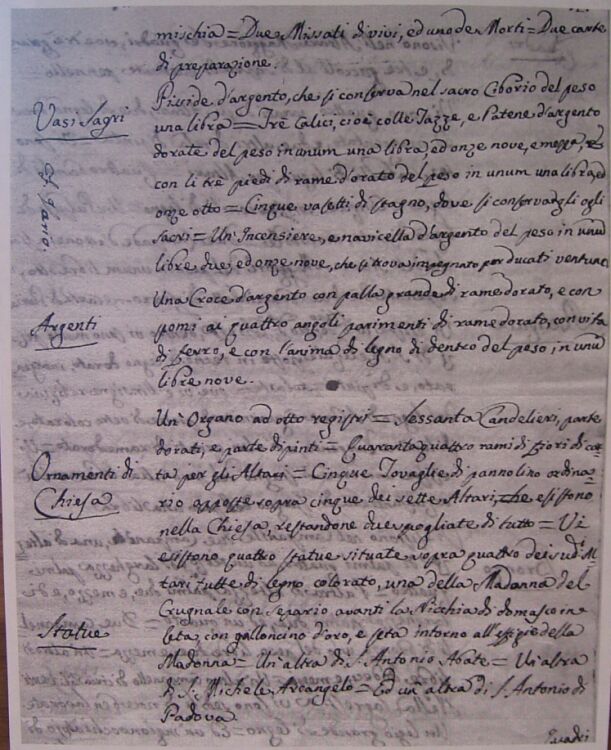 mischia = Due Missati di vivi, ed uno de Morti = Due carte
di preparazione.
Vasi Sagri
Pisside d'argento, che si conserva nel sacro Ciborio del peso
una libra = Trè Calici, cioè colle Tazze, e Patene d'argento
dorate del peso in unum una libra, ed onze nove, e mezza,
con li trè piedi di rame d'orato del peso in unum una libra, ed
onze otto = Cinque vasetti di stagno, dove si conservan gli ogli
sacri = Un' Incensiere, e navicella d'argento del peso in unum
libre due, ed onze nove, che si trova impegnato per ducati
Argenti
Una Croce d'argento con palla grande di rame dorato, e con
pomi ai quattro angoli parimenti di rame dorato, con vita
di ferro, e con l'anima di legno di dentro del peso in unum
libre nove.
Ornamenti di
Chiesa
Un' Organo ad otto registri = Sessanta Candelieri, parte
dorati, e parte dipinti = Quaranta quattro rami di fiori di car
ta per gli Altari = Cinque Tovaglie di pannolino ordina
rio apposte sopra cinque dei sette Altari, che esistono
nella Chiesa, restandone due spogliate di tutto = Vi
Statue
esistono quattro statue situate sopra quattro dei sud.i Al
tari tutte di legno colorato, una della Madonna del
Crugnale con separio avanti la Nicchia di damasco in
seta, con galloncino d'oro, e seta intorno all'effigie della
Madonna = Un' altra di S. Antonio Abate = Un' altra
di S. Michele Arcangelo = Ed un' altra di S. Antonio di
Padova.
Quadri